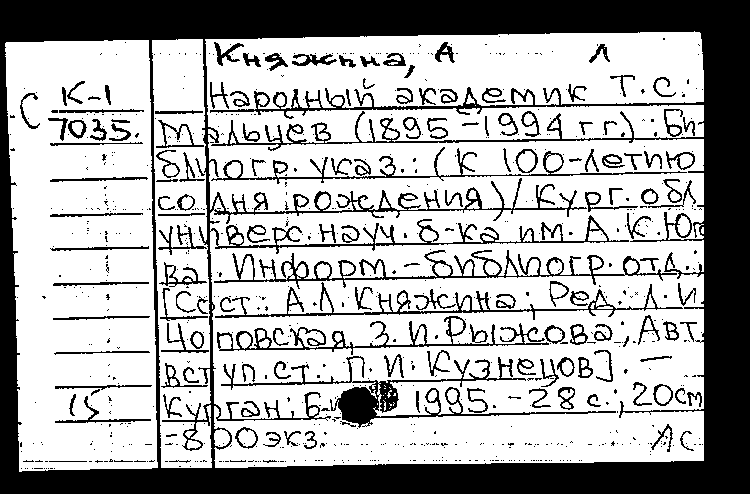 Княжина, А Л
С К-1 Народный академик Т.С.
7035. Мальцев (1895-1994 гг.) : Би-
блиогр. указ. : (К 100-летию
со дня рождения) / Кург. обл.
универс. науч. б-ка им. А. К. Юго
ва. Информ.-библиогр. отд.;
[Сост.: А.Л. Княжина; Ред.: Л.И.
Чоповская, З.И. Рыжова; Авт.
вступ. ст.: П.И. Кузнецов]. —
15 Курган: 1995. - 28 с.; 20см
-800экз.